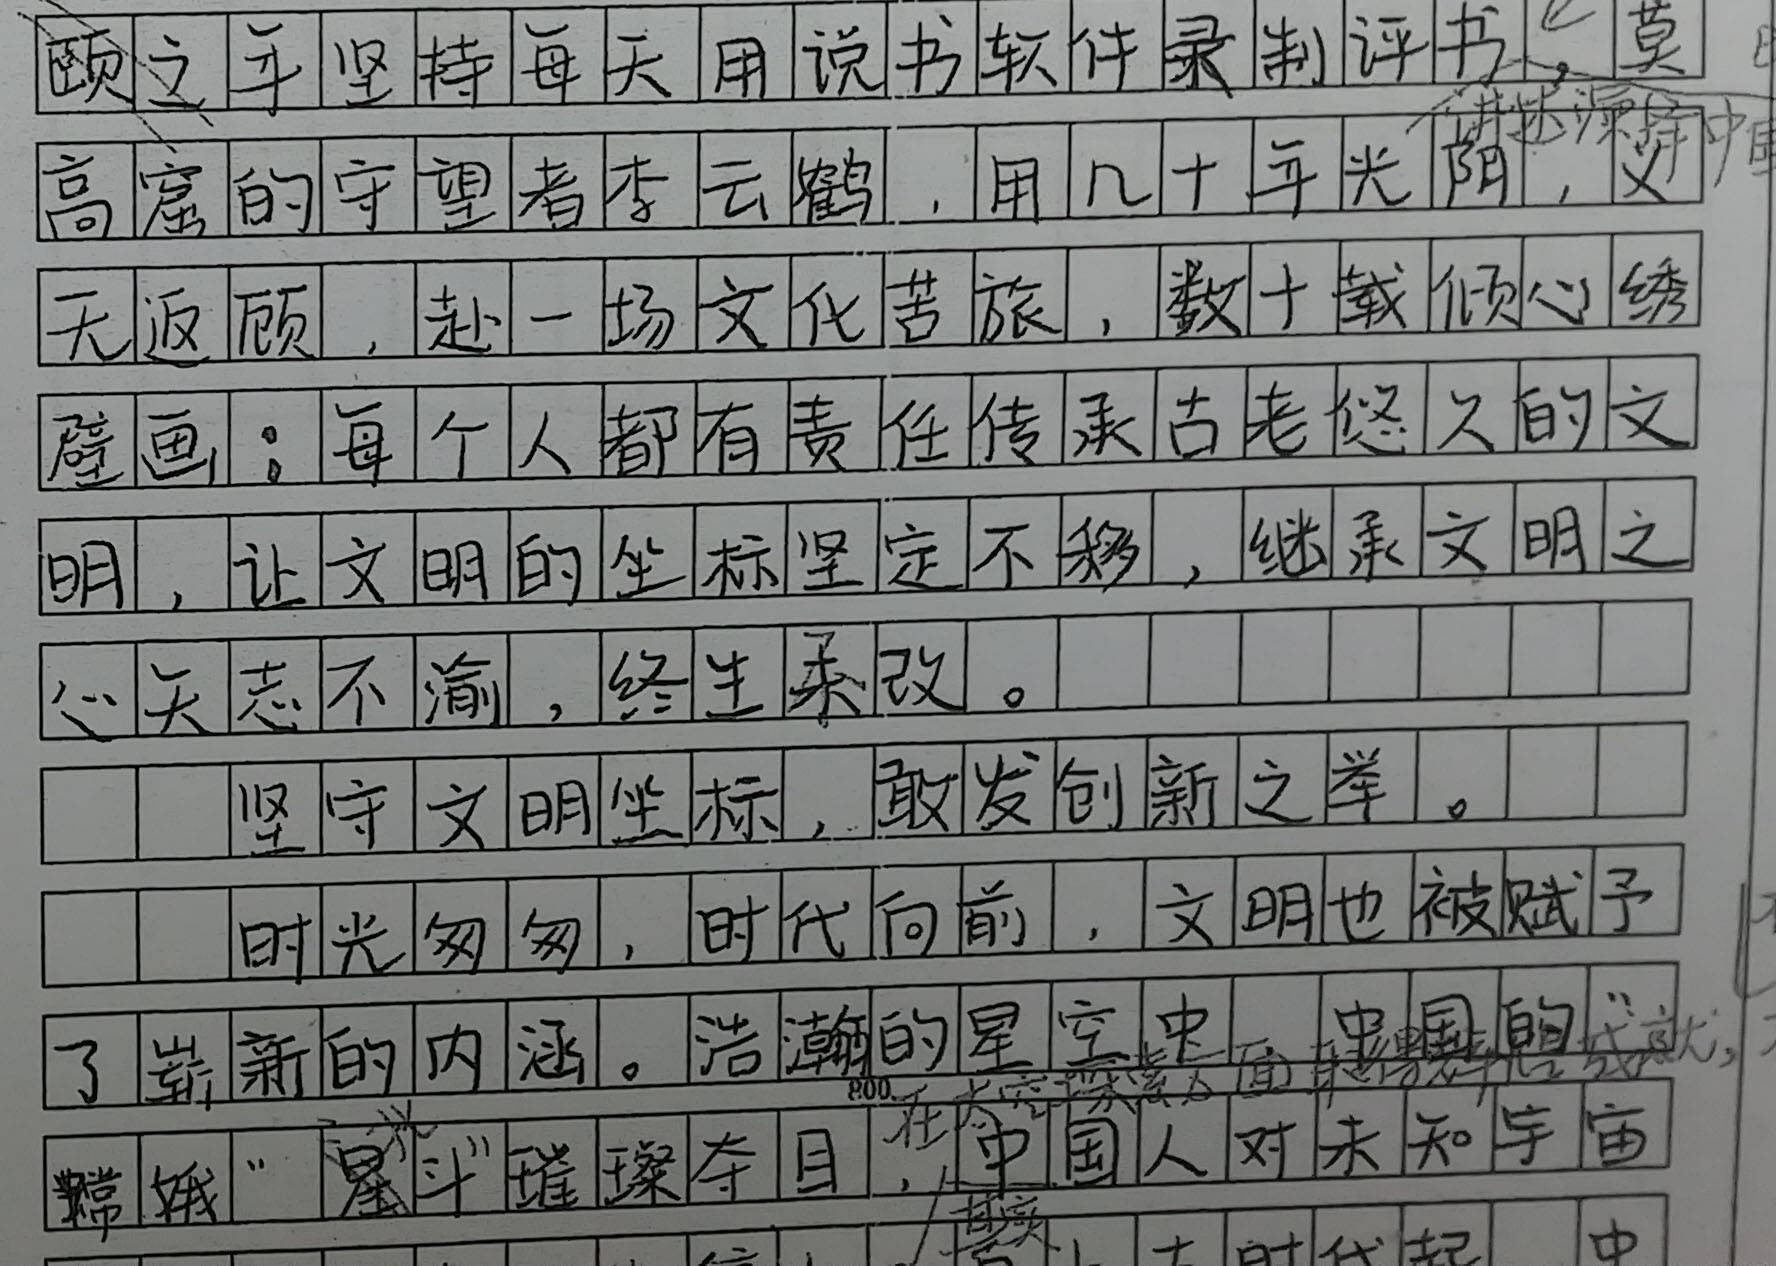 颐之年坚持每天用说书软件录制评书，莫
讲述源
高窟的守望者李云鹤，用几十年光阴，义
无返顾，赴一场文化苦旅，数十载倾心绣
壁画；每个人都有责任传承古老悠久的文
明，让文明的坐标坚定不移，继承文明之
心矢志不渝，终生未改。
坚守文明坐标，敢发创新之举。
时光匆匆，时代向前，文明也被赋予
了崭新的内涵。浩瀚的星空中 中国的“
800
在太空探索方面取得辉煌成就，
嫦娥“星斗”璀璨夺目，中国人对未知宇宙
古时代起 中